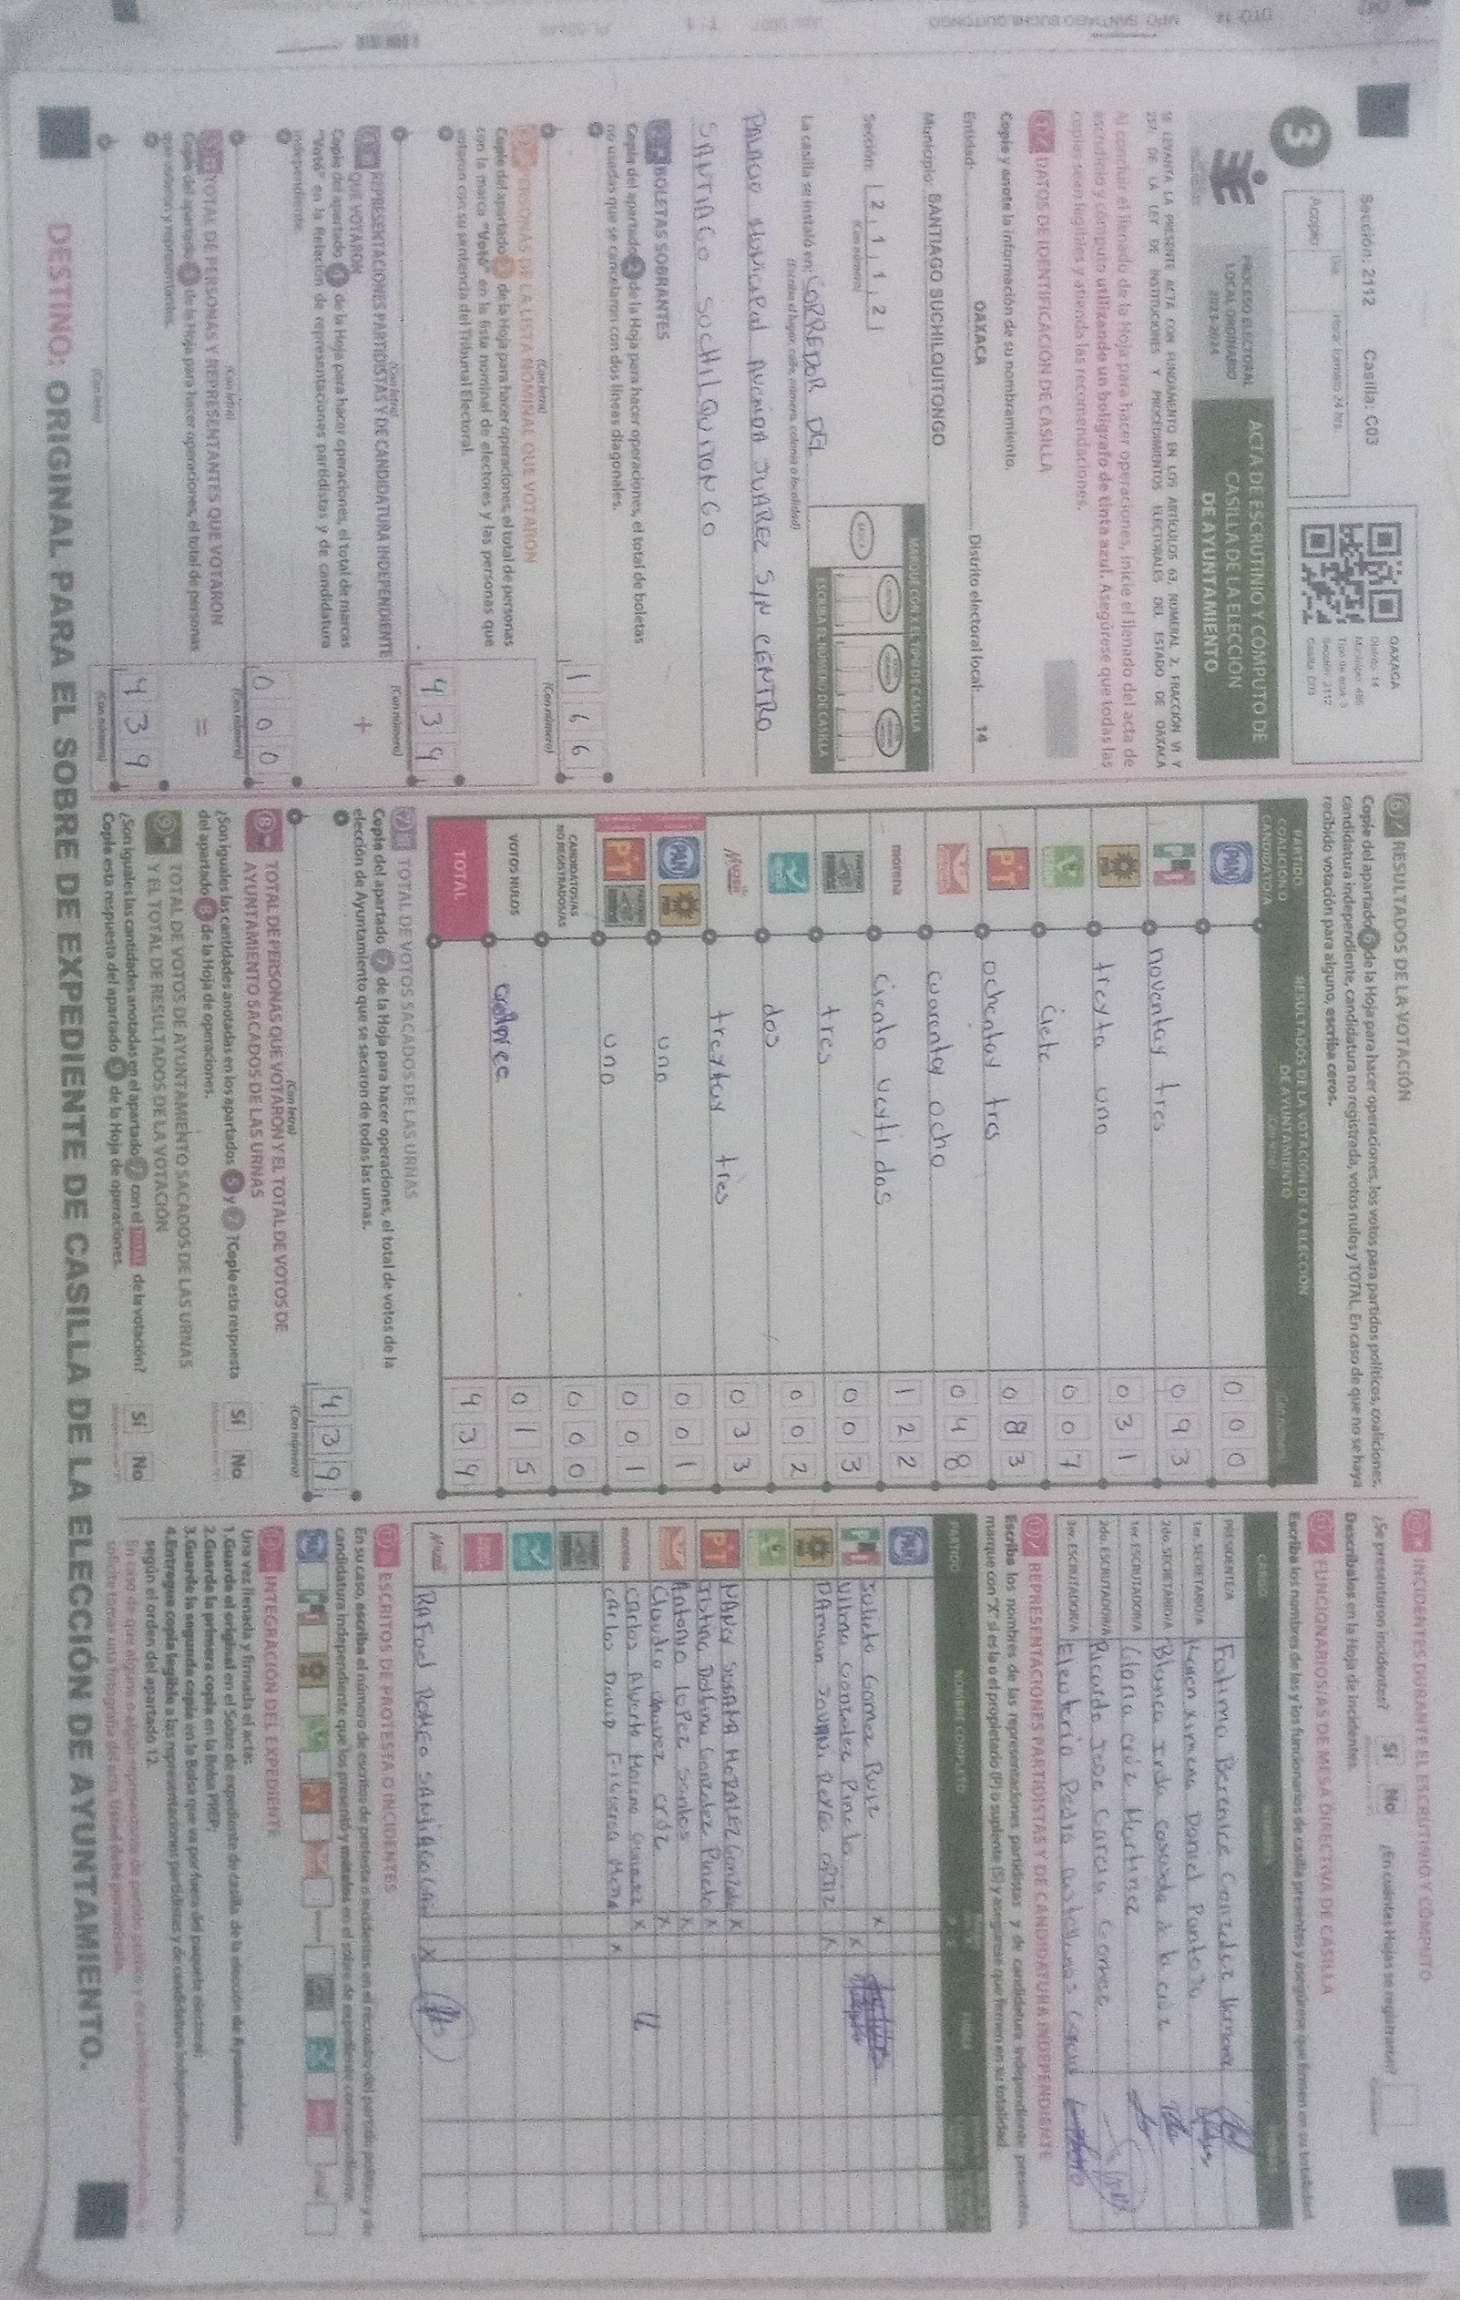 Sección: 2112 Casilla: C03
OAXACA
Distrito: 14
Sección: 2112
Casilla: C03
Acopio:
Hora: formato 24 hrs.
3
PROCESO ELECTORAL
LOCAL ORDINARIO
2023-2024
ACTA DE ESCRUTINIO Y CÓMPUTO DE
CASILLA DE LA ELECCIÓN
DE AYUNTAMIENTO
SE LEVANTA LA PRESENTE ACTA CON FUNDAMENTO EN LOS ARTÍCULOS 63, NUMERAL 2, FRACCIÓN VI Y
257, DE LA LEY DE INSTITUCIONES Y PROCEDIMIENTOS ELECTORALES DEL ESTADO DE OAXACA
Al concluir el llenado de la Hoja para hacer operaciones, inicie el llenado del acta de
escrutinio y cómputo utilizando un bolígrafo de tinta azul. Asegúrese que todas las
copias sean legibles y atienda las recomendaciones.
1 DATOS DE IDENTIFICACIÓN DE CASILLA
Copie y anote la información de su nombramiento.
Entidad: OAXACA Distrito electoral local: 14
Municipio: SANTIAGO SUCHILQUITONGO
Sección: 2 1 1 2
(Con número)
MARQUE CON X EL TIPO DE CASILLA
ESCRIBA EL NÚMERO DE CASILLA
La casilla se instaló en: CORREDOR DEL
(Escriba el lugar, calle, número, colonia o localidad)
PALACIO MUNICIPAL AVENIDA JUAREZ S/N CENTRO
SANTIAGO SUCHILQUITONGO
2 BOLETAS SOBRANTES
Copie del apartado 2 de la Hoja para hacer operaciones, el total de boletas
no usadas que se cancelaron con dos líneas diagonales.
1 6 6
(Con letra) (Con número)
3 PERSONAS DE LA LISTA NOMINAL QUE VOTARON
Copie del apartado 3 de la Hoja para hacer operaciones, el total de personas
con la marca "Votó" en la lista nominal de electores y las personas que
votaron con su sentencia del Tribunal Electoral.
4 3 9
(Con letra) (Con número)
4 REPRESENTACIONES PARTIDISTAS Y DE CANDIDATURA INDEPENDIENTE
QUE VOTARON
Copie del apartado 4 de la Hoja para hacer operaciones, el total de marcas
"Votó" en la Relación de representaciones partidistas y de candidatura
independiente.
+
0 0 0
(Con letra) (Con número)
5 TOTAL DE PERSONAS Y REPRESENTANTES QUE VOTARON
Copie del apartado 5 de la Hoja para hacer operaciones, el total de personas
que votaron y representantes.
=
4 3 9
(Con letra) (Con número)
6 RESULTADOS DE LA VOTACIÓN
Copie del apartado 6 de la Hoja para hacer operaciones, los votos para partidos políticos, coaliciones,
candidatura independiente, candidatura no registrada, votos nulos y TOTAL. En caso de que no se haya
recibido votación para alguno, escriba ceros.
PARTIDO, COALICIÓN O CANDIDATO/A
RESULTADOS DE LA VOTACIÓN DE LA ELECCIÓN
DE AYUNTAMIENTO
PAN 0 0 0
PRI noventay tres 0 9 3
PRD treyta uno 0 3 1
ciete 0 0 7
PT ochentay tres 0 8 3
cuarentay ocho 0 4 8
morena ciento veyti dos 1 2 2
tres 0 0 3
dos 0 0 2
Mujer treytay tres 0 3 3
PAN PRD uno 0 0 1
PT uno 0 0 1
CANDIDATOS/AS
NO REGISTRADOS/AS 0 0 0
VOTOS NULOS 0 1 5
TOTAL 4 3 9
7 TOTAL DE VOTOS SACADOS DE LAS URNAS
Copie del apartado 7 de la Hoja para hacer operaciones, el total de votos de la
elección de Ayuntamiento que se sacaron de todas las urnas.
4 3 9
(Con letra) (Con número)
8 TOTAL DE PERSONAS QUE VOTARON Y EL TOTAL DE VOTOS DE
AYUNTAMIENTO SACADOS DE LAS URNAS
¿Son iguales las cantidades anotadas en los apartados 5 y 7? Copie esta respuesta
del apartado 8 de la Hoja de operaciones.
Sí No
9 TOTAL DE VOTOS DE AYUNTAMIENTO SACADOS DE LAS URNAS
Y EL TOTAL DE RESULTADOS DE LA VOTACIÓN
¿Son iguales las cantidades anotadas en el apartado 7 con el TOTAL de la votación?
Copie esta respuesta del apartado 9 de la Hoja de operaciones.
Sí No
10 INCIDENTES DURANTE EL ESCRUTINIO Y CÓMPUTO
¿Se presentaron incidentes? Sí No ¿En cuántas Hojas se registraron?
Descríbalos en la Hoja de incidentes.
11 FUNCIONARIOS/AS DE MESA DIRECTIVA DE CASILLA
Escriba los nombres de las y los funcionarios de casilla presentes y asegúrese que firmen en su totalidad
CARGO
PRESIDENTE/A Fatima Berenice Gonzalez
1er. SECRETARIO/A Karen Ximena Daniel Pantoja
2do. SECRETARIO/A Blanca Irda de la cruz
1er. ESCRUTADOR/A Gloria cruz Martinez
2do. ESCRUTADOR/A Ricardo Jose Garcia Gomez
3er. ESCRUTADOR/A Eleuterio Pedro
REPRESENTACIONES PARTIDISTAS Y DE CANDIDATURA INDEPENDIENTE
Escriba los nombres de las representaciones partidistas y de candidatura independiente presentes,
marque con "X" si es la o el propietario (P) o suplente (S) y asegúrese que firmen en su totalidad
PARTIDO NOMBRE COMPLETO FIRMA
PAN
Julieta Gomez Ruiz X
PRI Vilma Gonzalez Pineda X
PRD DArman JOVANI Reyes ORTIZ X
NANCY SUSANA MORALES Gonzalez X
PT Delfina Gonzalez Pineda X
Antonio Lopez Santos X
Claudia cruz X
morena Carlos Alberto Moreno X
Carlos David Figueroa Mena X
Mujer RAFAEL ROMEO SANTIAGO X
ESCRITOS DE PROTESTA O INCIDENTES
En su caso, escriba el número de escritos de protesta o incidentes en el recuadro del partido político y de
candidatura independiente que los presentó y métalos en el sobre de expediente correspondiente.
INTEGRACIÓN DEL EXPEDIENTE
Una vez llenada y firmada el acta:
1. Guarde el original en el Sobre de expediente de casilla de la elección de Ayuntamiento;
2. Guarde la primera copia en la Bolsa PREP;
3. Guarde la segunda copia en la Bolsa que va por fuera del paquete electoral;
4. Entregue copia legible a las representaciones partidistas y de candidatura independiente presentes,
según el orden del apartado 12.
DESTINO: ORIGINAL PARA EL SOBRE DE EXPEDIENTE DE CASILLA DE LA ELECCIÓN DE AYUNTAMIENTO.